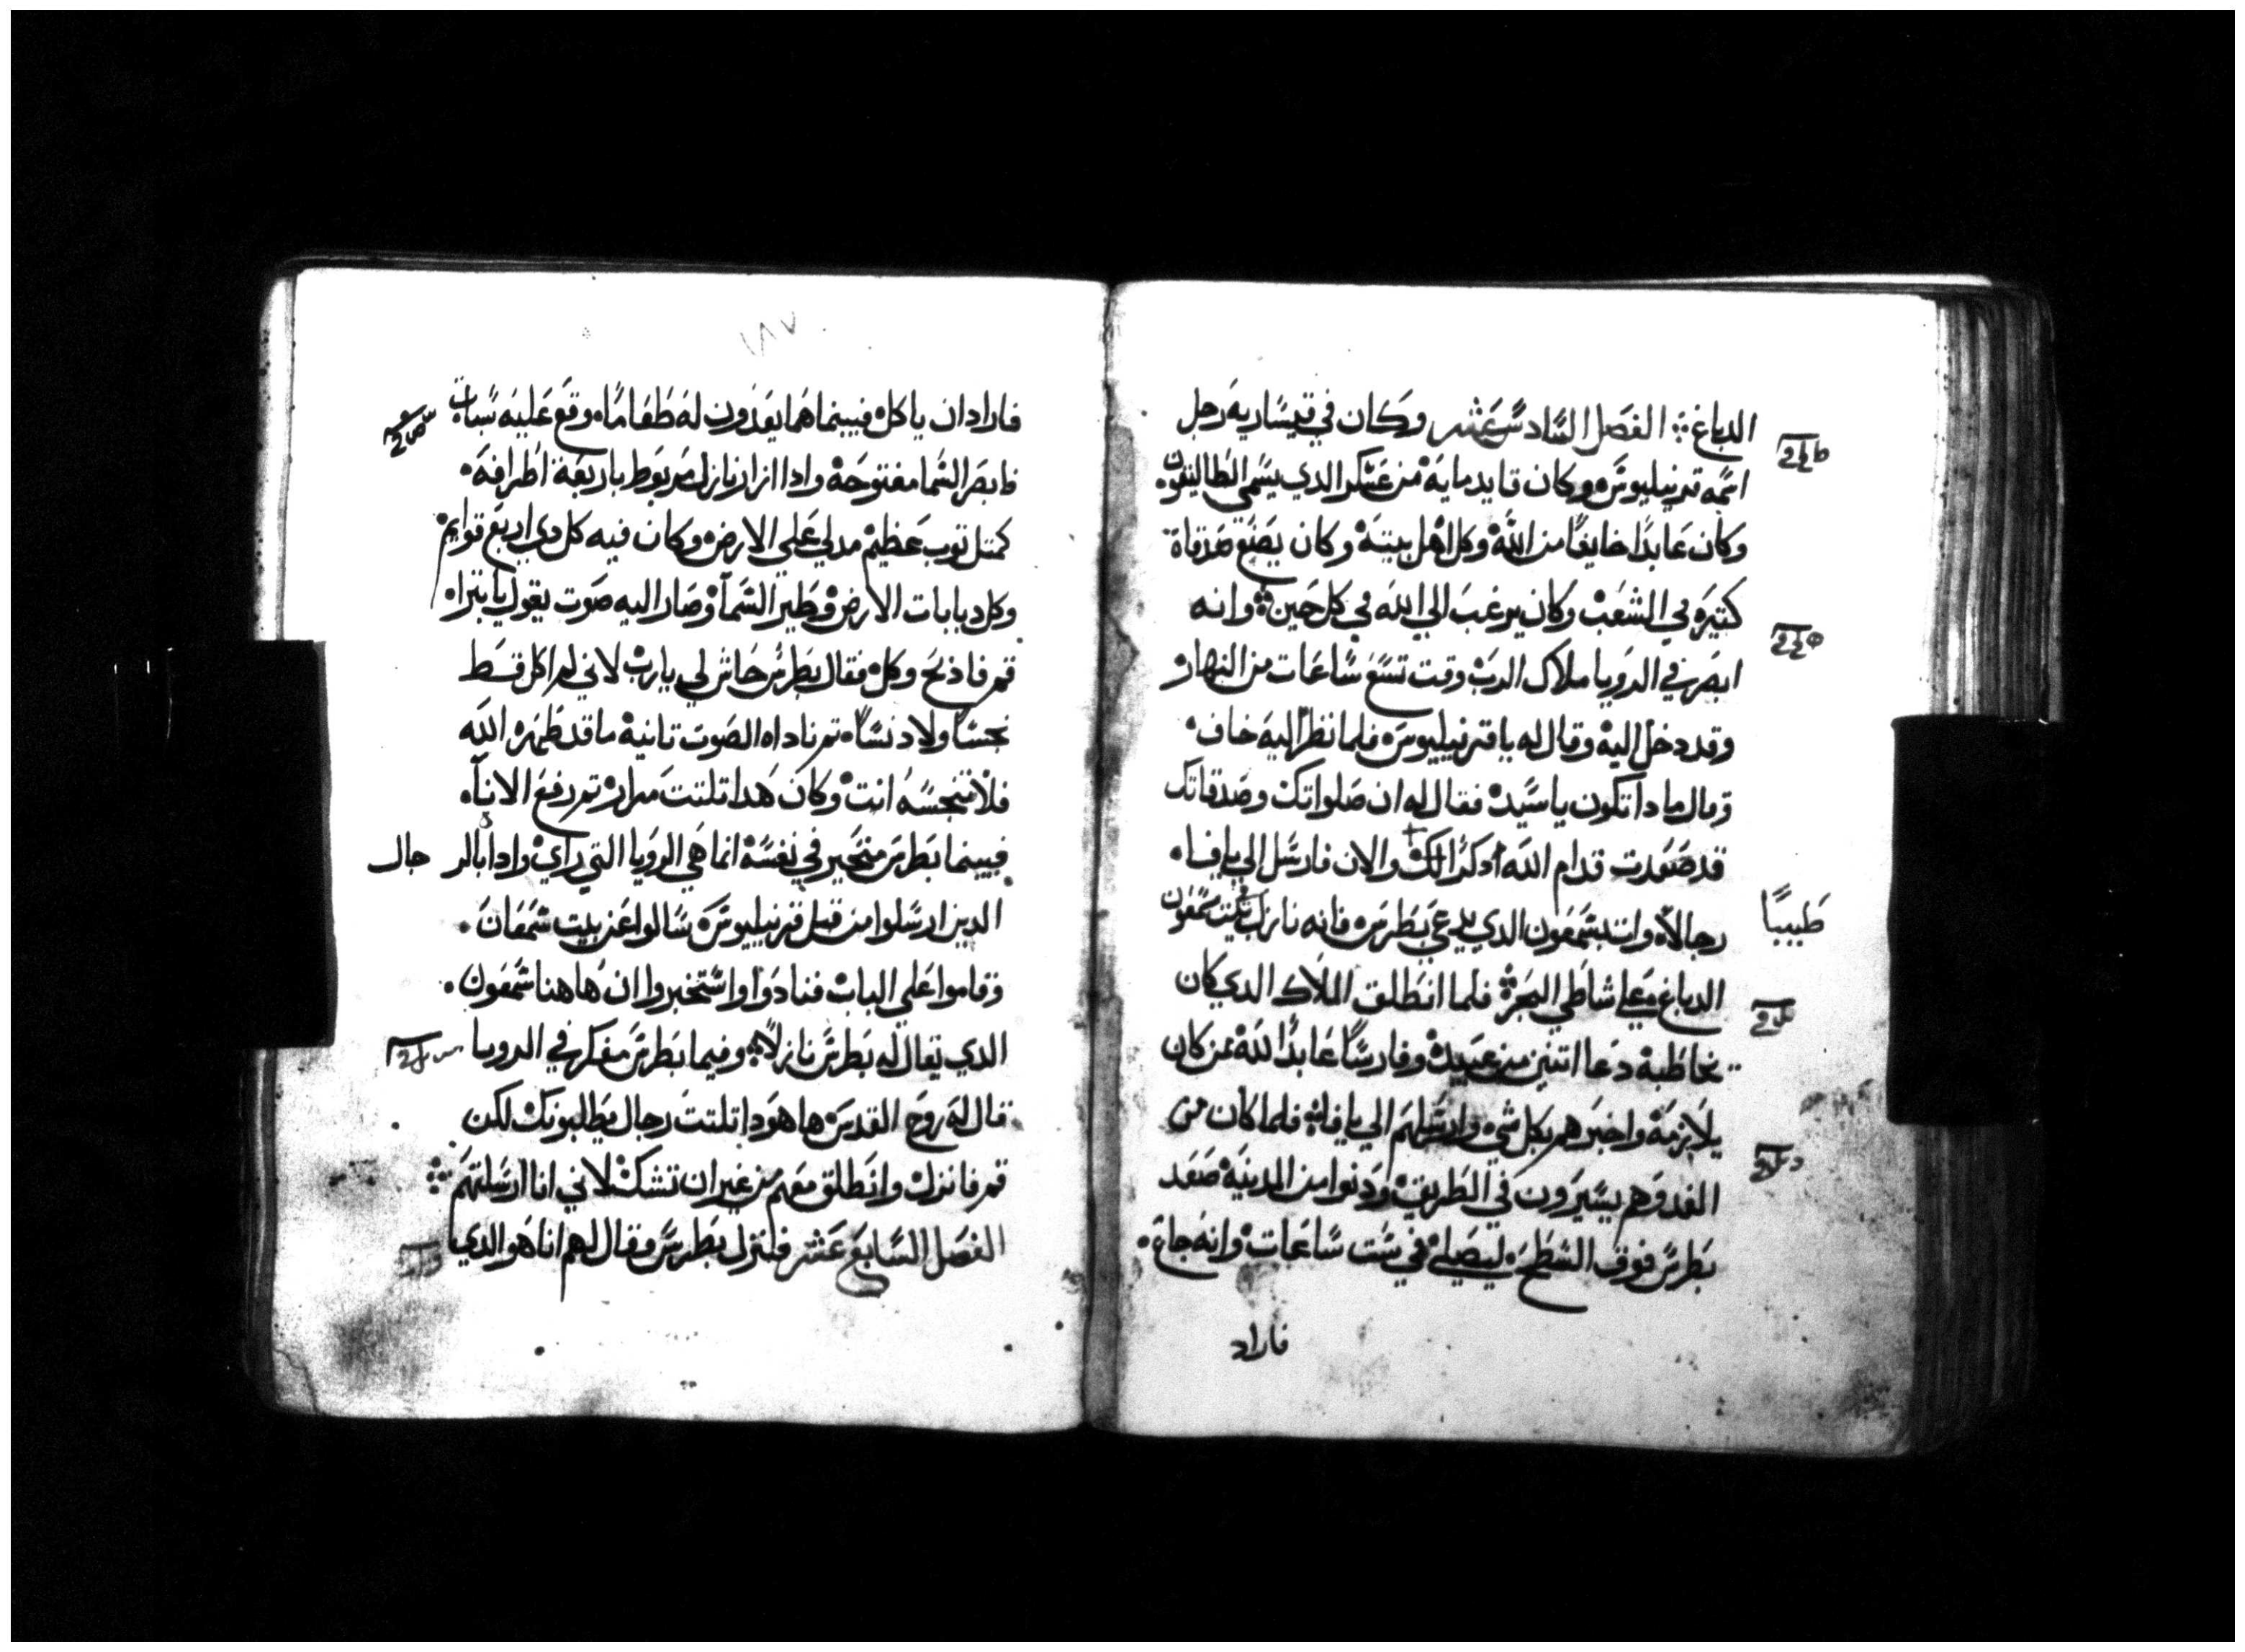 الدباغ ܀ الفصل السادس عشر وكان في قيساريه رجل
اسمه قرنيليوس وكان قايد مايه من عسكر الذي يسمى الطاليقون
وكان عابدًا خايفًا من الله وكل اهل بيته وكان يصنع صدقاة
كتيره في الشعب وكان يرغب الي الله في كل حين ܀ وانه
ابصر في الرويا ملاك الرب وقت تسع ساعات من النهار
وقد دخل اليه وقال له يا قرنيليوس فلما نظر اليه خاف
وقال مادا تكون يا سيد فقال له ان صلواتك وصدقاتك
قد صعدت قدام الله ادكرًا لك والان فارسل الي يافا
رجالًا وات بشمعون الدي يدعي بطرس فانه نازل في بيت سمعون
طبيبًا
الدباغ علي شاطي البحر ܀ فلما انطلق الملاك الدي كان
يخاطبه دعا اتنين من عبيده وفارسًا عابدًا لله ممن كان
يلازمه واخبرهم بكل شي وارسلهم الي يافا ܀ فلما كان من
الغد وهم يسيرون في الطريق ودنوا من المدينه صعد
بطرس فوق السطح ليصلي في ست ساعات وانه جاع
فاراد
١٨٧
فاراد ان ياكل فبينما هما يعدون له طعامًا وقع عليه سبات
فابصر السما مفتوحه وادا ازار نازل مربوط باربعة اطرافه
كمتل توب عظيم مدلي علي الارض وكان فيه كل دي اربع قوايم
وكل دبابات الارض وطير السمآ وصار اليه صوت يقول يا بترا
قم فاذبح وكل فقال بطرس حاش لي يارب لاني لم اكل قط
نجسًا ولا دنسًا تم ناداه الصوت تانية ما قد طهره الله
فلا تنجسه انت وكان هدا تلتت مرار تم رفع الانآ
فبينما بطرس متحير في نفسه انما هي الرويا التي راي وادا بالر جال
الدين ارسلوا من قبل قرنيليوس سالوا عن بيت شمعان
وقاموا علي الباب فنادوا واستخبروا ان هاهنا شمعون
الدي يقال له بطرس نازلًا ܀ وفيما بطرس مفكر في الرويا
قال له روح القدس ها هودا تلتت رجال يطلبونك لكن
قم فانزل وانطلق معهم من غير ان تشك لاني انا ارسلتهم ܀
الفصل السابع عشر فلنزل بطرس وقال لهم انا هو الدي